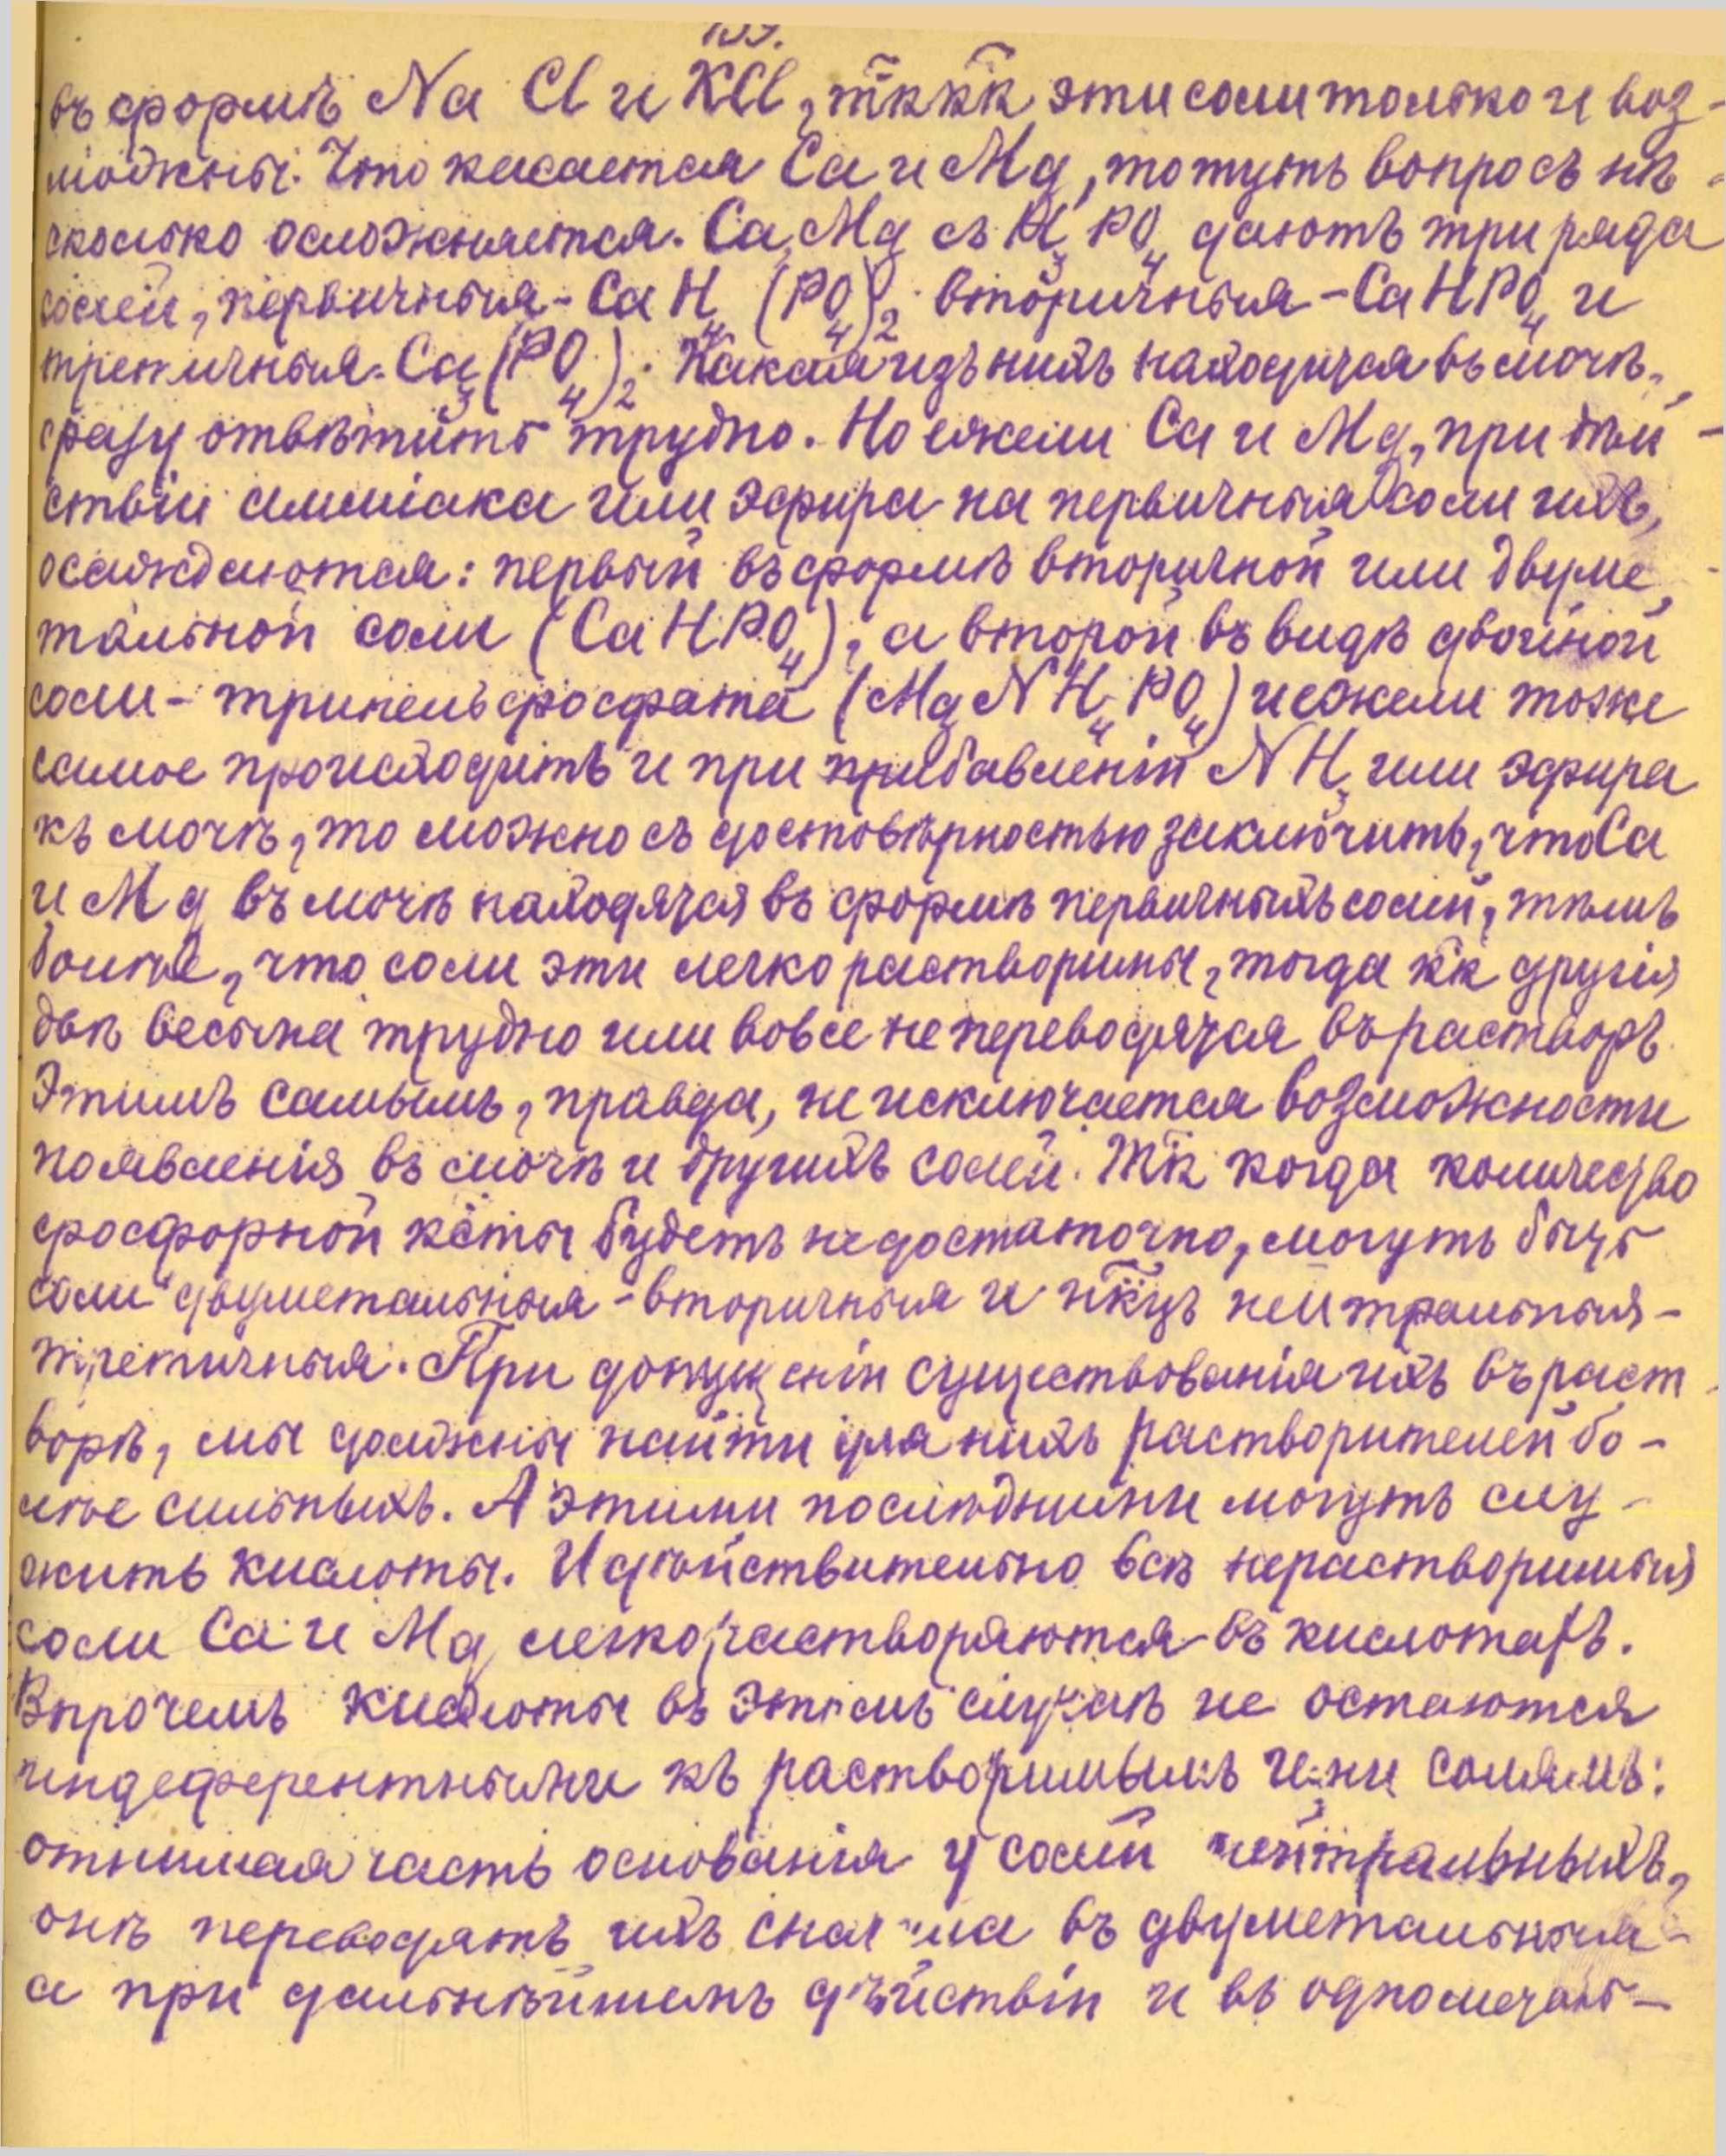 въ формѣ NaCl и KCl, тк ккк эти соли только и воз-
можны. Что касается Ca и Mg, то тутъ вопросъ нѣ-
сколько осложняется. Ca, Mg съ H₃PO₄ даютъ три ряда
солей, первичныя - CaH₄(PO₄)₂. вторичныя - CaHPO₄ и
третичныя. Ca₃(PO₄)₂. Какая изъ нихъ находится въ мочѣ,
сразу отвѣтить трудно. Но ежели Ca и Mg, при дѣй-
ствіи амміака или эфира на первичныя соли ихъ,
осаждаются: первый въ формѣ вторичной или двуме-
тальной соли (CaHPO₄), а второй въ видѣ двойной
соли - трипельфосфата (MgNH₄PO₄) и ежели тоже
самое происходитъ и при прибавленіи NH₃ или эфира
къ мочѣ, то можно съ достовѣрностью заключить, что Ca
и Mg въ мочѣ находятся въ формѣ первичныхъ солей, тѣмъ
болѣе, что соли эти легко растворимы, тогда кк другія
двѣ весьма трудно или вовсе не переводятся въ растворъ.
Этимъ самымъ, правда, не исключается возможности
появленія въ мочѣ и другихъ солей. Тк когда количество
фосфорной кты будетъ недостаточно, могутъ быть
соли двуметальныя - вторичныя и нкцъ нейтральныя -
третичныя. При допущеніи существованія ихъ въ раст-
ворѣ, мы должны найти для нихъ растворителей бо-
лѣе сильныхъ. А этими послѣдними могутъ слу-
жить кислоты. И дѣйствительно всѣ нерастворимыя
соли Ca и Mg легко растворяются въ кислотахъ.
Впрочемъ кислоты въ этомъ случаѣ не остаются
индеферентными къ растворимымъ ими солямъ:
отнимая часть основанія у солей нейтральныхъ,
онѣ переводятъ ихъ сначала въ двуметальныя -
а при дальнѣйшемъ дѣйствіи и въ однометаль-